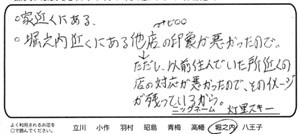 ○家近くにある。
○堀之内近くにある他店の印象が悪かったので。
→ただし、以前住んでいた所近くの
店の対応が悪かったので、そのイメージ
が残っているから。
ニックネーム 灯里スキー
よく利用されるお店を
○で囲んでください。
立川 小作 羽村 昭島 青梅 高幡 堀之内 八王子